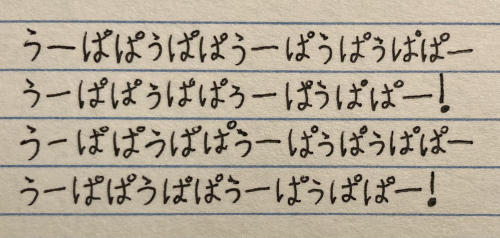 うーぱぱうぱぱうーぱうぱうぱぱー
うーぱぱうぱぱろーぱうぱぱー!
うーぱぱうぱぱうーぱうぱうぱぱー
うーぱぱうぱぱうーぱうぱぱー!